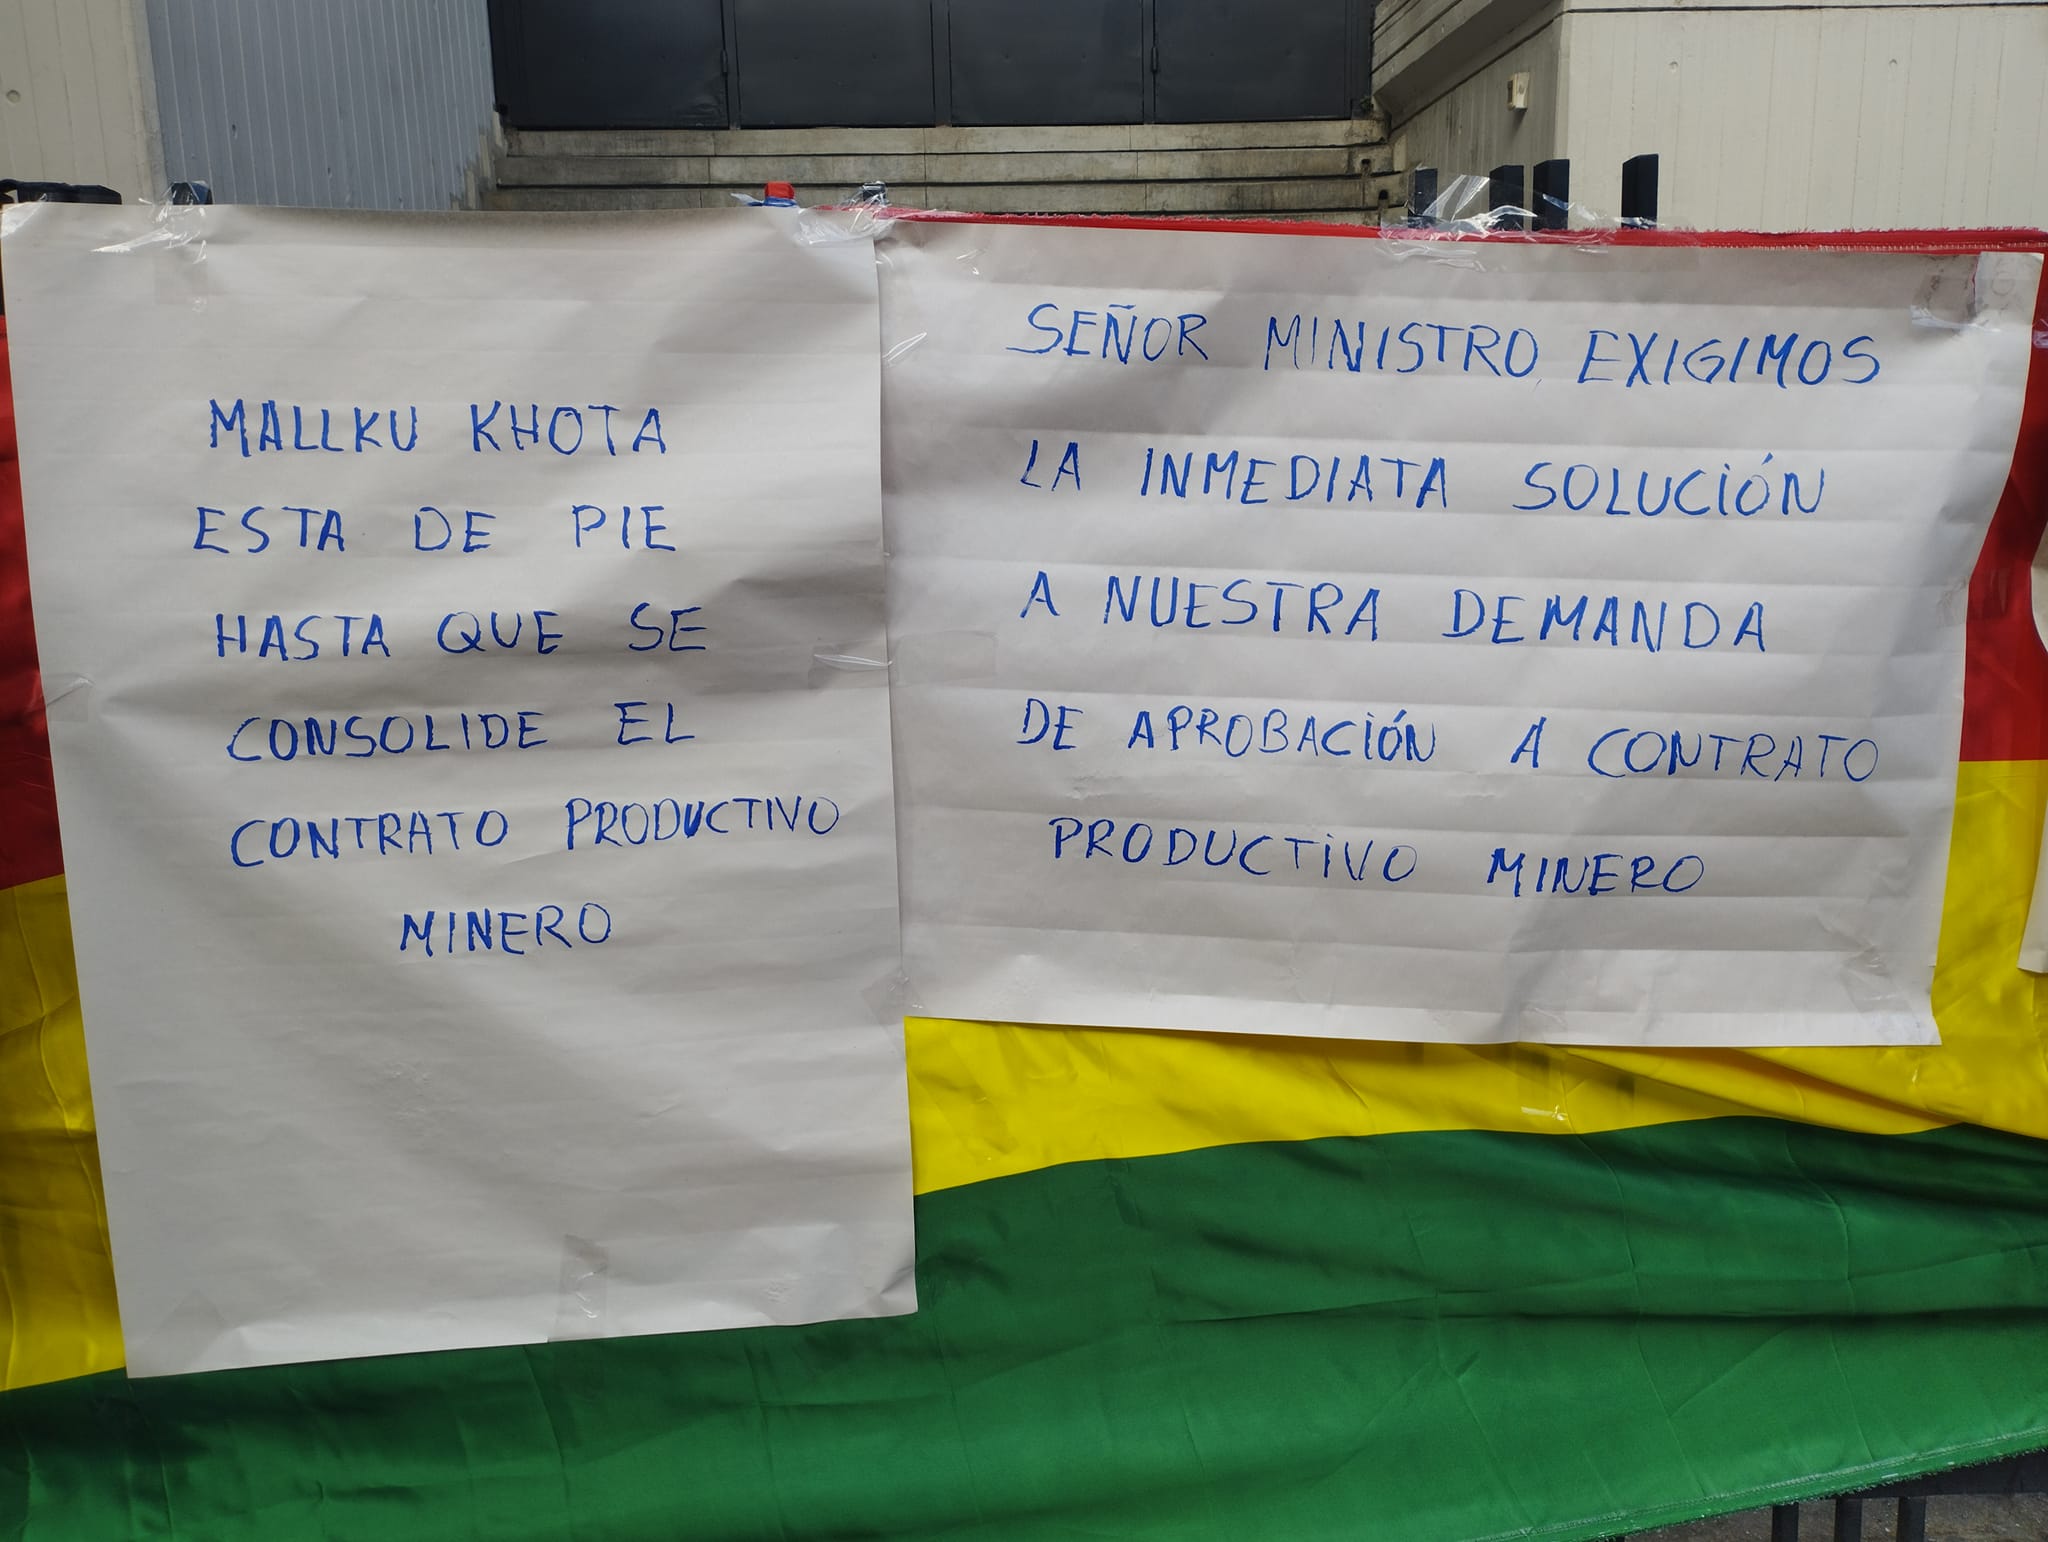 MALLKU KHOTA
ESTA DE PIE
HASTA QUE SE
CONSOLIDE EL
CONTRATO PRODUCTIVO
MINERO
SEÑOR MINISTRO, EXIGIMOS
LA INMEDIATA SOLUCIÓN
A NUESTRA DEMANDA
DE APROBACIÓN A CONTRATO
PRODUCTIVO MINERO